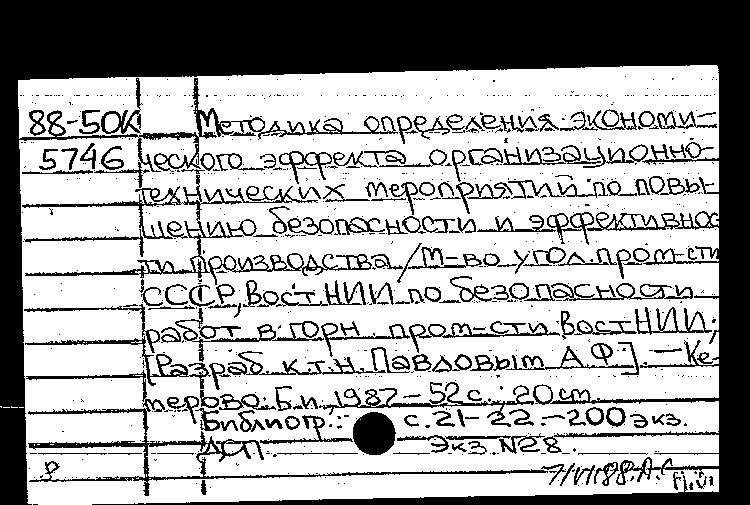 88-50К Методика определения экономи-
5746 ческого эффекта организационно-
технических мероприятий по повы-
шению безопасности и эффективнос
ти производства / М-во угол. пром-сти
СССР, Вост.НИИ по безопасности
работ в горн. пром-сти ВостНИИ;
[Разраб. к.т.н. Павловым А.Ф.]. — Ке-
мерово: Б.и., 1987 – 52 с.; 20 см.
Библиогр.: с. 21-22. – 200 экз.
ДСП. Экз. N28.